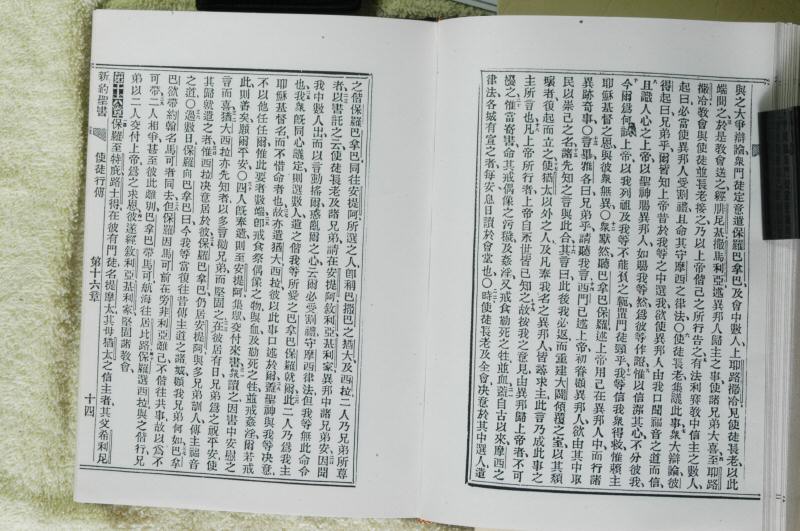 與之大爭辯論衆門徒定意遣保羅巴拿巴及會中數人上耶路撒冷見使徒長老以此
端問之於是教會送之經腓尼基撒馬利亞述異邦人歸主之事使諸兄弟大喜至耶路
撒冷教會與使徒並長老接之乃以上帝偕己之所行告之有法利賽教中信主之數人
起曰必當使異邦人受割禮且命其守摩西之律法〇使徒長老集議此事衆大辯論彼
得起曰兄弟乎爾皆知上帝昔於我等之中選我欲使異邦人由我口聞福音之道而信
且識人心之上帝以聖神賜異邦人如賜我等然爲彼等作證惟以信潔其心不分彼我
今爾爲何試上帝以我列祖及我等不能負之軛置門徒頸乎我等信我衆得救惟賴主
耶穌基督之恩與彼無異〇衆默然聽巴拿巴保羅述上帝用己在異邦人中而行諸
異跡奇事〇言畢雅各曰兄弟乎請聽我言西門已述上帝初眷顧異邦人欲由其中取
民以崇己之名諸先知之言與此合其言曰此後我必返而重建大闢傾覆之室以其頹
壞者復起而立之使猶太以外之人及凡奉我名之異邦人皆尋求主此言乃成此事之
主所言也凡上帝所行者上帝自永世皆已知之故按我之意見由異邦歸上帝者不可
擾之惟當寄書命其戒偶像之污穢及姦淫又戒食勒死之牲並血蓋自古以來摩西之
律法各城有宣之者每安息日讀於會堂也〇時使徒長老及全會決意於其中選人遣
之偕保羅巴拿巴同往安提阿所選之人卽稱巴撒巴之猶大及西拉二人乃兄弟所尊
者以書託之云使徒長老及諸兄弟請在安提阿敘利亞基利家異邦中諸兄弟安因聞
我中數人出而以言動搖爾惑亂爾心云爾必受割禮守摩西律法但我等無此命令
也我衆旣同心議定則選數人遣之偕我等所愛之巴拿巴保羅就爾此二人乃爲我主
耶穌基督名而不惜命者也故亦遣猶大西拉彼以此事口述於爾蓋聖神與我等決意
不以他任任爾惟此要者數端卽戒食祭偶像之物與血及勒死之牲並戒姦淫爾若戒
此則善矣願爾平安〇四人旣奉遣則至安提阿集衆交付來書衆讀之因書中安慰之
言而喜猶大西拉亦先知者以多言勸兄弟而堅固之在彼居有日兄弟爲之祝平安使
其歸就遣之者惟西拉決意居於彼保羅巴拿巴仍居安提阿與多兄弟訓人傳主福音
之道〇過數日保羅向巴拿巴曰今我等當復往昔傳主道之諸城顧我兄弟何如巴拿
巴欲帶約翰名馬可者同去但保羅因馬可前在旁非利亞離己不偕往共事故以爲不
可帶二人相爭甚至彼此離別巴拿巴帶馬可航海往居比路保羅選西拉與之偕行兄
弟以二人交付上帝爲之求恩彼遂經敘利亞基利家堅固諸教會
第十六章保羅至特庇路士得在彼有門徒名提摩太其母猶太之信主者其父希利尼
新約聖書 使徒行傳 第十六章 十四